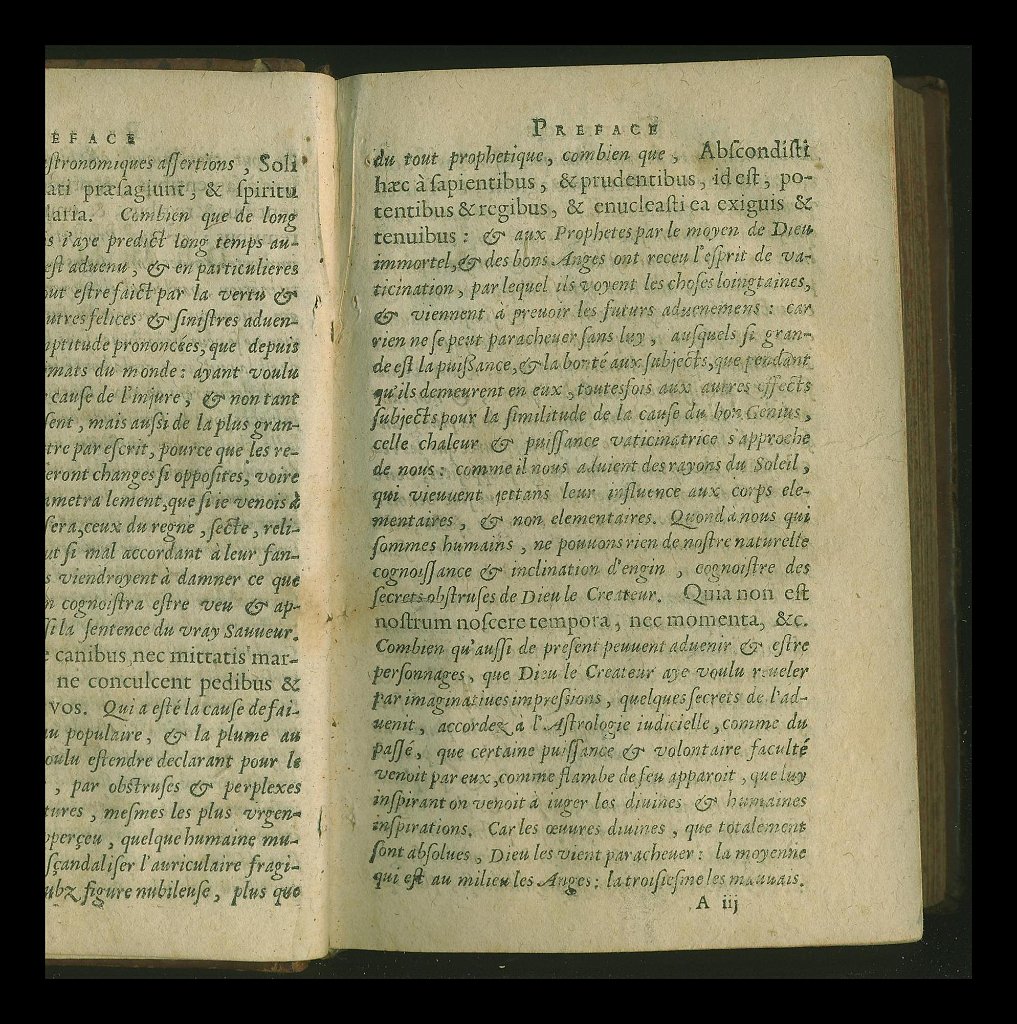 EFACE
aſtronomiques aſſertions, Soli
præſagiunt, & ſpiritu
Combien que de long
i'aye predict long temps au-
eſt aduenu, & en particulieres
eſtre faict par la vertu &
felices & ſiniſtres aduen-
prononcées, que depuis
du monde: ayant voulu
cauſe de l'injure, & non tant
mais auſsi de la plus gran-
par eſcrit, pource que les re-
changes ſi oppoſites, voire
lement, que ſi ie venois à
ceux du regne, ſecte, reli-
ſi mal accordant à leur fan-
viendroyent à damner ce que
cognoiſtra eſtre veu & ap-
la ſentence du vray Sauueur.
canibus nec mittatis mar-
ne conculcent pedibus &
vos. Qui a eſté la cauſe de fai-
populaire, & la plume au
eſtendre declarant pour le
, par obſtruſes & perplexes
meſmes les plus vrgen-
quelque humaine mu-
ſçandaliſer l'auriculaire fragi-
figure nubileuſe, plus que
PREFACE
du tout prophetique, combien que, Abſcondiſti
hæc à ſapientibus, & prudentibus, id eſt, po-
tentibus & regibus, & enucleaſti ea exiguis &
tenuibus: & aux Prophetes par le moyen de Dieu
immortel, & des bons Anges ont receu l'eſprit de va-
ticination, par lequel ils voyent les choſes loingtaines,
& viennent à preuoir les futurs aduenemens: car
rien ne ſe peut paracheuer ſans luy, auſquels ſi gran-
de eſt la puiſſance, & la bonté aux ſubjects, que pendant
qu'ils demeurent en eux, toutesfois aux autres effects
ſubjects pour la ſimilitude de la cauſe du bon Genius,
celle chaleur & puiſſance vaticinatrice s'approche
de nous: comme il nous aduient des rayons du Soleil,
qui vieuuent jettans leur influence aux corps ele-
mentaires, & non elementaires. Quond à nous qui
ſommes humains, ne pouuons rien de noſtre naturelle
cognoiſſance & inclination d'engin, cognoiſtre des
ſecrets obſtruſes de Dieu le Createur. Quia non eſt
noſtrum noſcere tempora, nec momenta, &c.
Combien qu'auſſi de preſent peuuent aduenir & eſtre
perſonnages, que Dieu le Createur aye voulu reueler
par imaginatiues impreſsions, quelques ſecrets de l'ad-
uenir, accordez à l'Aſtrologie iudicielle, comme du
paſſé, que certaine puiſſance & volontaire faculté
venoit par eux, comme flambe de feu apparoit, que luy
inſpirant on venoit à iuger les diuines & humaines
inſpirations. Car les œuures diuines, que totalement
ſont abſolues, Dieu les vient paracheuer: la moyenne
qui eſt au milieu les Anges: la troiſieſme les mauuais.
A iij